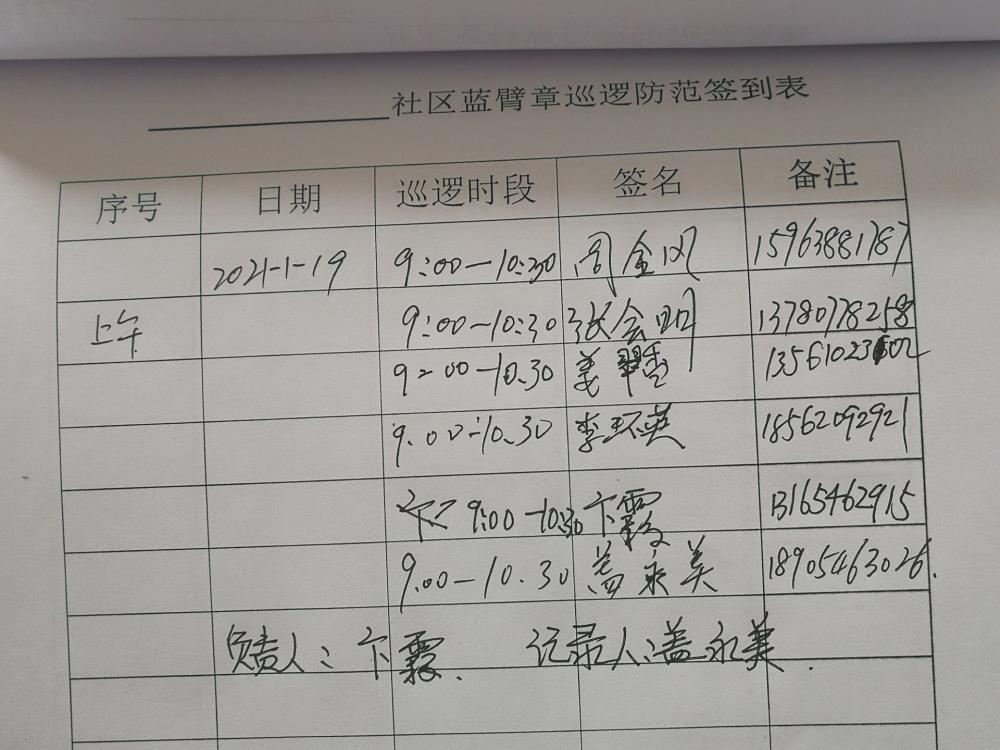 社区蓝臂章巡逻防范签到表
序号 日期 巡逻时段 签名 备注
2021-1-19 9:00-10:30 周金凤 15963881787
上午 9:00-10:30 张会明 13780778258
9:00-10.30 姜 13561023502
9.00-10.30 李环英 18562092921
9:00-10:30 卞霞 13165462915
9.00-10.30 盖永美 18905463026.
负责人:卞霞. 记录人:盖永美.